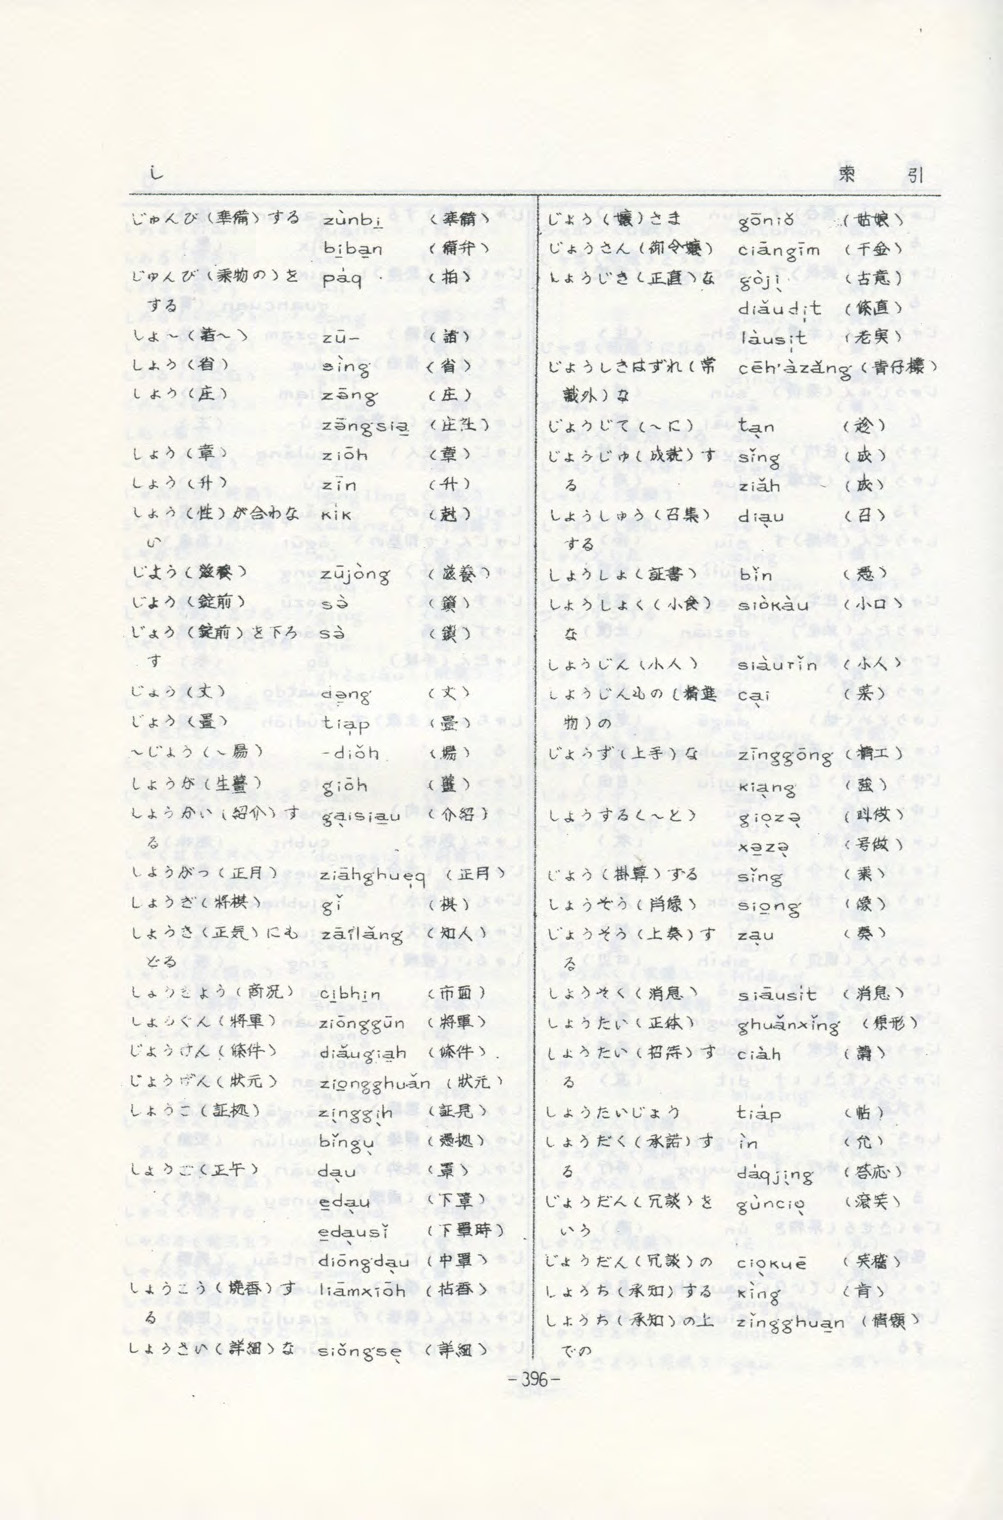 し
索 引
じゅんび(準備)する zùnbi̱ (準備)
bi̱ba̱n (備弁)
じゅんび(乘物の)を páq (拍)
する
しょ~(諸~) zū- (諸)
しょう(省) sìng (省)
しょう(庄) zāng (庄)
zāngsia̱ (庄社)
しょう(章) ziōh (章)
しょう(升) zīn (升)
しょう(性)が合わな kìk (尅)
い
じよう(滋養) zūjòng (滋養)
じょう(錠前) sə̀ (鎖)
じょう(錠前)を下ろ sə̀ (鎖)
す
じょう(丈) də̱ng (丈)
じょう(疊) tia̍p (疊)
~じょう(~場) -diǒh (場)
しょうが(生薑) giōh (薑)
しょうかい(紹介)す ga̱isia̱u (介紹)
る
しょうがつ(正月) ziāhghue̍q (正月)
しょうぎ(将棋) gǐ (棋)
しょうき(正気)にも zāilǎng (知人)
どる
しょうきょう(商況) ci̱bhi̱n (市面)
しょうぐん(将軍) ziōnggūn (將軍)
じょうけん(條件) diǎugia̱h (條件)
じょうげん(狀元) zio̱ngghuǎn (狀元)
しょうこ(証拠) zi̱nggi̱h (証見)
bǐngu̱ (憑拠)
しょうご(正午) da̱u (罩)
e̱da̱u (下罩)
e̱da̱usǐ (下罩時)
diōngda̱u (中罩)
しょうこう(焼香)す liāmxiōh (拈香)
る
しょうさい(詳細)な siǒngse̱ (詳細)
じょう(嬢)さま gōniǒ (姑娘)
じょうさん(御令嬢) ciāngīm (千金)
しょうじき(正直)な gòji̱ (古意)
diǎudi̍t (條直)
làusi̍t (老実)
じょうしきはずれ(常 cēh'àzǎng (青仔欉)
識外)な
じょうじて(~に) ta̱n (趁)
じょうじゅ(成就)す sǐng (成)
る ziǎh (成)
しょうしゅう(召集) dia̱u (召)
する
しょうしょ(証書) bǐn (憑)
しょうしょく(小食) siòkàu (小口)
な
しょうじん(小人) siàurǐn (小人)
しょうじんもの(精進 ca̱i (菜)
物)の
じょうず(上手)な zīnggōng (精工)
kia̱ng (強)
しょうする(~と) gio̱zə̱ (叫做)
xə̱zə̱ (号做)
じょう(掛算)する sǐng (乘)
しょうぞう(肖像) sio̱ng (像)
じょうそう(上奏)す za̱u (奏)
る
しょうそく(消息) siāusit (消息)
しょうたい(正体) ghuǎnxǐng (原形)
しょうたい(招待)す ciàh (請)
る
しょうたいじょう tiáp (帖)
しょうだく(承諾)す ìn (允)
る dáqji̱ng (答応)
じょうだん(冗談)を gùncio̱ (滾笑)
いう
じょうだん(冗談)の cio̱kuē (笑詼)
しょうち(承知)する kìng (肯)
しょうち(承知)の上 zǐngghua̱n (情願)
での
-396-